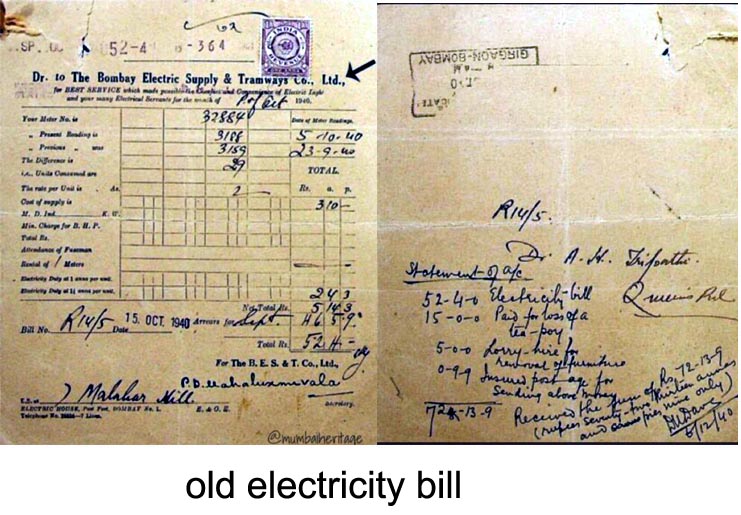 52-4
6-364
INDIA
REVENUE
ONE ANNA
Dr. to The Bombay Electric Supply & Tramways Co., Ltd.,
for BEST SERVICE which made possible the Comfort and Convenience of Electric Light
and your many Electrical Servants for the month of Oct 1940.
Your Meter No. is 32884 Date of Meter Readings.
„ Present Reading is 3188 5-10-40
„ Previous „ was 3159 23-9-40
The Difference is 29
i.e., Units Consumed are TOTAL.
The rate per Unit is . As. 2 Rs. a. p.
Cost of supply is 3 10 -
M. D. Ind. K. W.
Min. Charge for B. H. P.
Total Rs.
Attendance of Fuseman
Rental of 1 Meters
Electricity Duty at ½ anna per unit.
Electricity Duty at 1¼ annas per unit. 2 4 3
Net Total Rs. 5 14 3
Bill No. R14/5 Date 15 OCT. 1940 Arrears for Sept. 46 5 9
Total Rs. 52 4 -
For The B. E. S. & T. Co., Ltd.,
P.D. Mahaluxmivala
Malabar Hill
Secretary.
ELECTRIC HOUSE, Post Fort, BOMBAY No. 1. E. & O. E.
Telephone No. Lines.
@mumbaiheritage
GIRGAON-BOMBAY
R14/5.
Dr. A. H. Tripathi.
Statement of a/c
52-4-0 Electricity bill
15-0-0 Paid for loss of a
tea-poy
5-0-0 Lorry-hire for
removal of furniture
0-9-9 Insured postage for
sending above money
72-13-9
Received the sum of Rs 72-13-9
(rupees seventy-two thirteen annas
and pies nine only)
5/12/40
old electricity bill